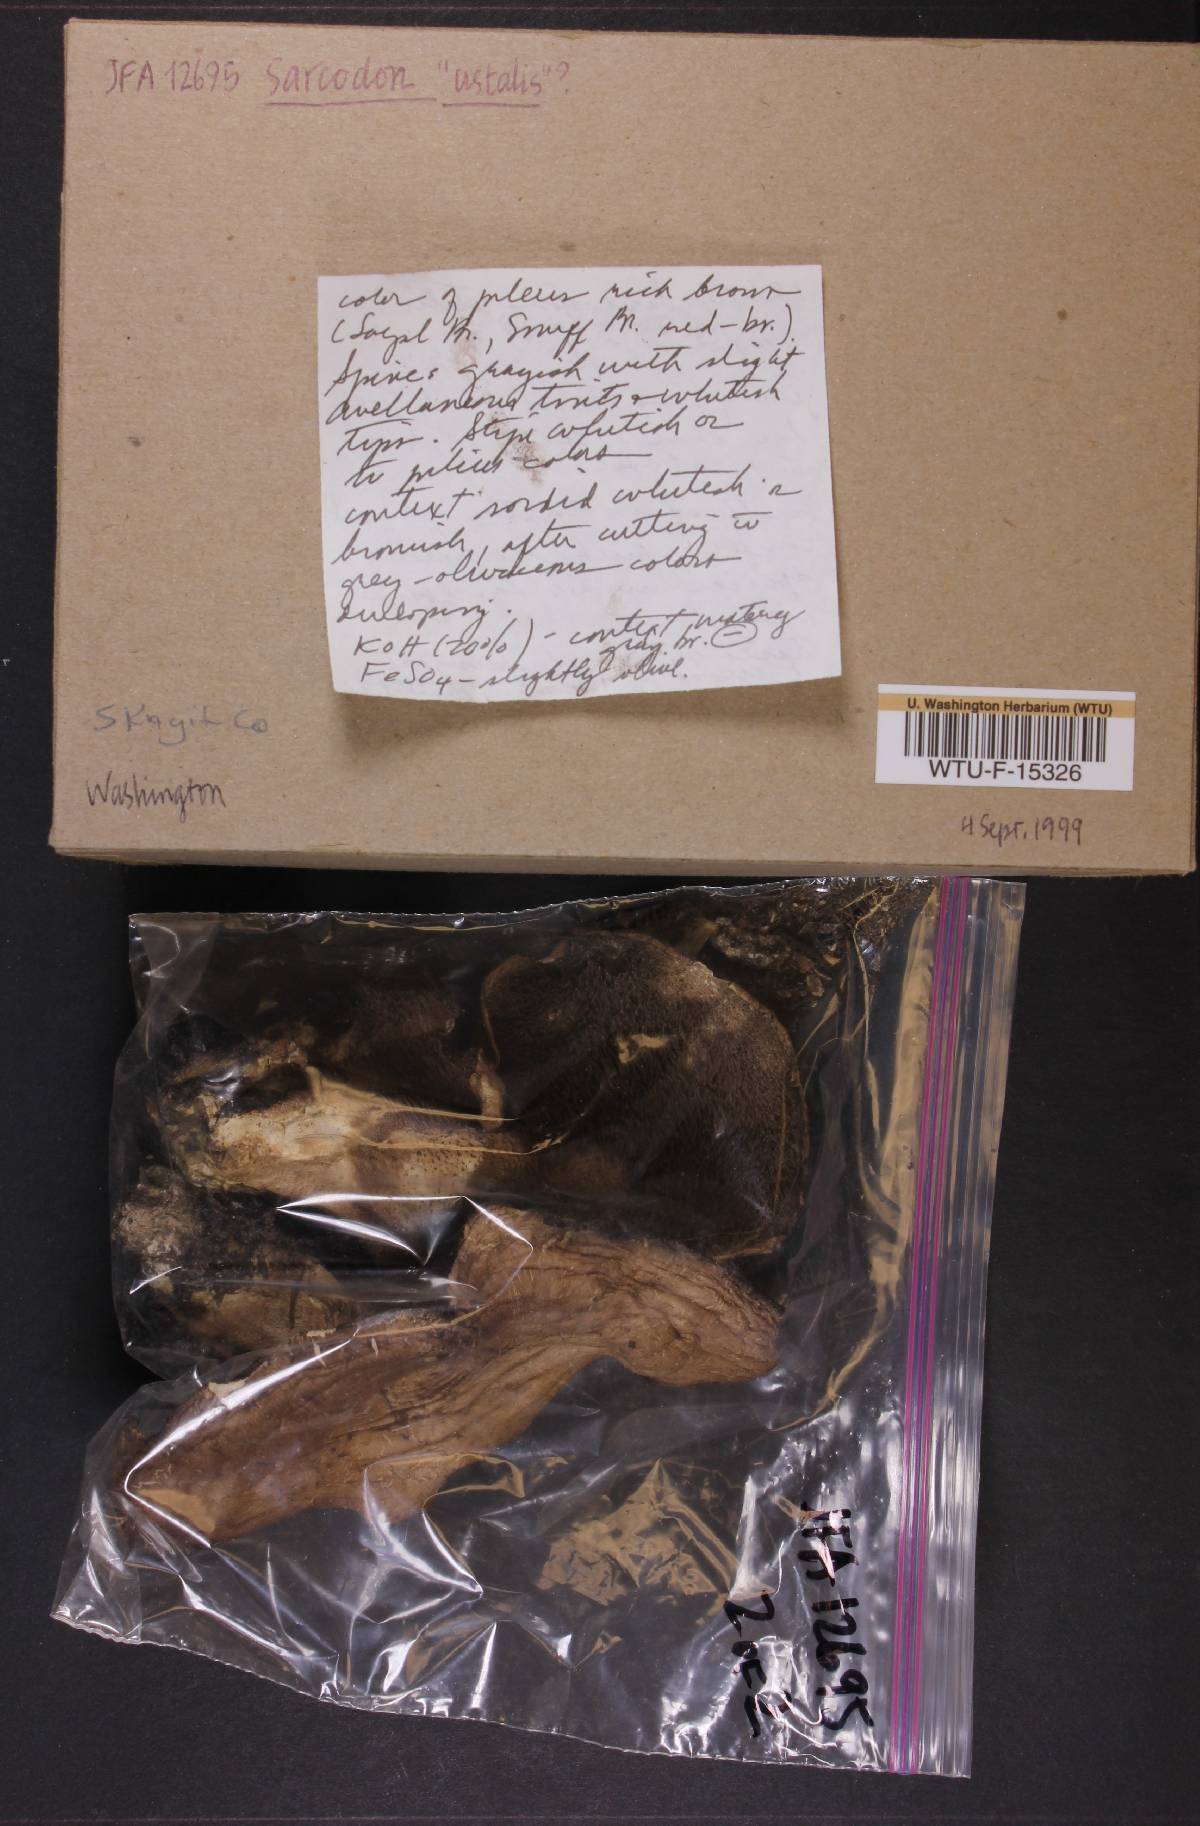 JFA 12695 Sarcodon "ustalis"?
color of pileus rich brown
(Saypl Br., Snuff Br. red-br.).
Spines grayish with slight
avellaneous tints & whitish
tips. Stipe whitish or
to pileus colors
context sordid whitish or
brownish, after cutting w
grey-olivaceous colors
developing.
KOH (20%) - context watery
gray br. (-)
FeSO4 - slightly olive.
Skagit Co
Washington
U. Washington Herbarium (WTU)
WTU-F-15326
4 Sept. 1999
JFA 12695
2 of 2